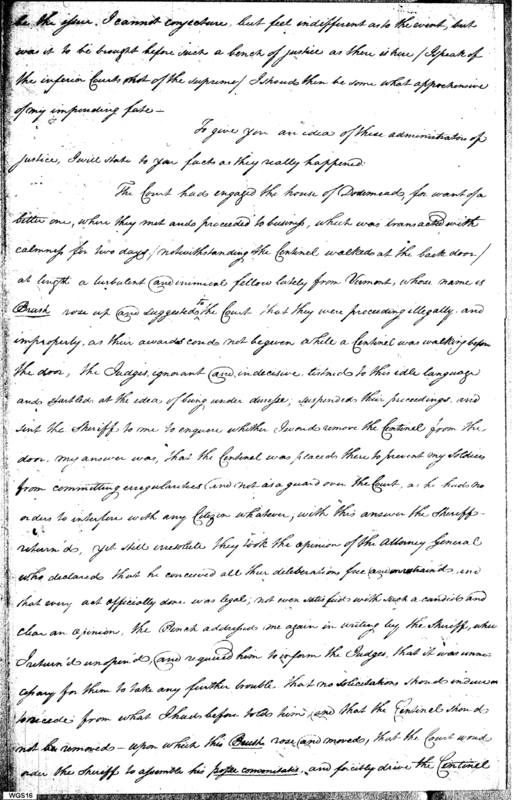 be the issue. I cannot conjecture, but feel indifferent as to the event, but
was it to be brought before such a bench of justice as there is here / I speak of
the inferior Courts & not of the supreme / I should then be some what apprehensive
of my impending fate —
To give you an idea of these administrators of
justice, I will state to you facts as they really happened.
The Court had engaged the house of Dodemead, for want of a
better one, where they met and proceeded to business, which was transacted with
calmness for two days / notwithstanding the Centinel walked at the back door /
at length a turbulent and inimical fellow lately from Vermont, whose name is
Brush rose up and suggested to the Court that they were proceeding illegally and
improperly, as their awards coud not be given while a Centinel was walking before
the door, the Judges, ignorant and indecisive listned to this idle language
and startled at the idea of being under duresse, suspended their proceedings, and
sent the Sheriff to me to enquire whether I woud remove the Centinel from the
door. my answer was, that the Centinel was placed there to prevent my Soldiers
from committing irregularities and not as a guard over the Court, as he had no
orders to interfere with any Citizen whatever, with this answer the Sheriff
return'd, yet still irresolute they took the opinion of the Attorney General
who declared that he conceived all their deliberations free and unrestrain'd and
that every act officially done was legal; not even satisfied with such a candid and
clear an opinion, the Bench addressed me again in writing by the Sheriff, which
I return'd unopen'd, and required him to inform the Judges, that it was unne-
cessary for them to take any further trouble that no solicitations should induce me
to recede from what I had before told him and that the Centinel should
not be removed — upon which this Brush rose and moved, that the Court woud
order the Sheriff to assemble his posse comonitatis, and forcibly drive the Centinel
WGS16